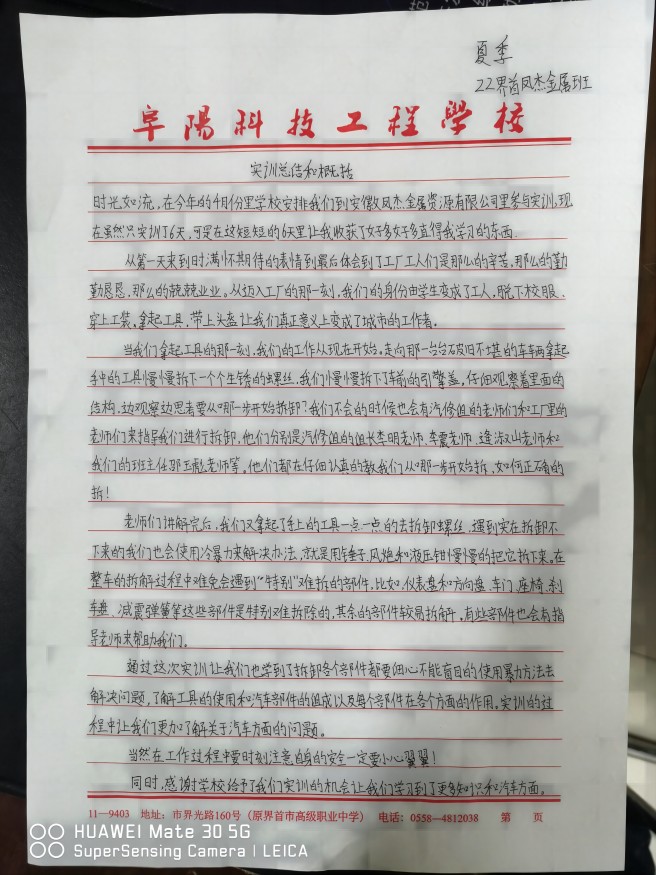 夏季
22界首凤杰金属班
阜陽科技工程學校
实训总结和概括
时光如流，在今年的4月份里学校安排我们到安徽凤杰金属资源有限公司里参与实训，现
在虽然只实训了6天，可是在这短短的6天里让我收获了好多好多直得我学习的东西。
从第一天来到时满怀期待的表情到最后体会到了工厂工人们是那么的辛苦，那么的勤
勤恳恳，那么的兢兢业业。从迈入工厂的那一刻，我们的身份由学生变成了工人，脱下校服、
穿上工装，拿起工具，带上头盔让我们真正意义上变成了城市的工作者。
当我们拿起工具的那一刻，我们的工作从现在开始。走向那一台台破旧不堪的车车两拿起
手中的工具慢慢拆下一个个生锈的螺丝，我们慢慢拆下了车前的引擎盖，仔细观察着里面的
结构，边观察边思考要从哪一步开始拆卸？我们不会的时候也会有汽修组的老师们和工厂里的
老师们来指导我们进行拆卸，他们分别是汽修组的组长李明老师、李震老师、逢淑山老师和
我们的班主任邵老师等。他们都在仔细认真的教我们从哪一步开始拆，如何正确的
拆！
老师们讲解完后，我们又拿起了手上的工具一点一点的去拆卸螺丝，遇到实在拆卸不
下来的我们也会使用冷暴力来解决办法，就是用锤子、风炮和液压钳慢慢的把它拆下来。在
整车的拆解过程中难免会遇到“特别”难拆的部件，比如，仪表盘和方向盘、车门、座椅、刹
车盘、减震弹簧等这些部件是特别难拆除的，其余的部件较易拆解，有些部件也会有指
导老师来帮助我们。
通过这次实训让我们也学到了拆卸各个部件都要细心不能盲目的使用暴力方法去
解决问题，了解工具的使用和汽车部件的组成以及每个部件在各个方面的作用。实训的过
程中让我们更加了解关于汽车方面的问题。
当然在工作过程中要时刻注意自身的安全一定要小心翼翼！
同时，感谢学校给予了我们实训的机会让我们学习到了更多知识和汽车方面。
11—9403 地址：市界光路160号（原界首市高级职业中学） 电话：0558—4812038 第 页
HUAWEI Mate 30 5G
SuperSensing Camera | LEICA